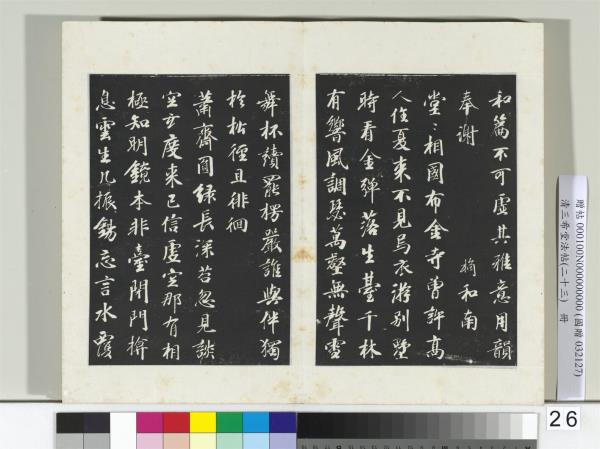 和篇不可虛其雅意用韻
奉謝
樀和南
堂〻相國布金寺曾許高
人住夏來不見烏衣游別墅
時看金彈落生臺千林
有響風調瑟萬壑無聲雪
舞杯續罷楞嚴誰與伴獨
於松徑且徘徊
蕭齋圓綠長深苔忽見談
空玄度來已信虛空那有相
極知明鏡本非臺閉門擠
息雲生几振錫忘言水覆
贈帖 000100N000000000 (國贈 032127)
清三希堂法帖(二十三) 冊
26